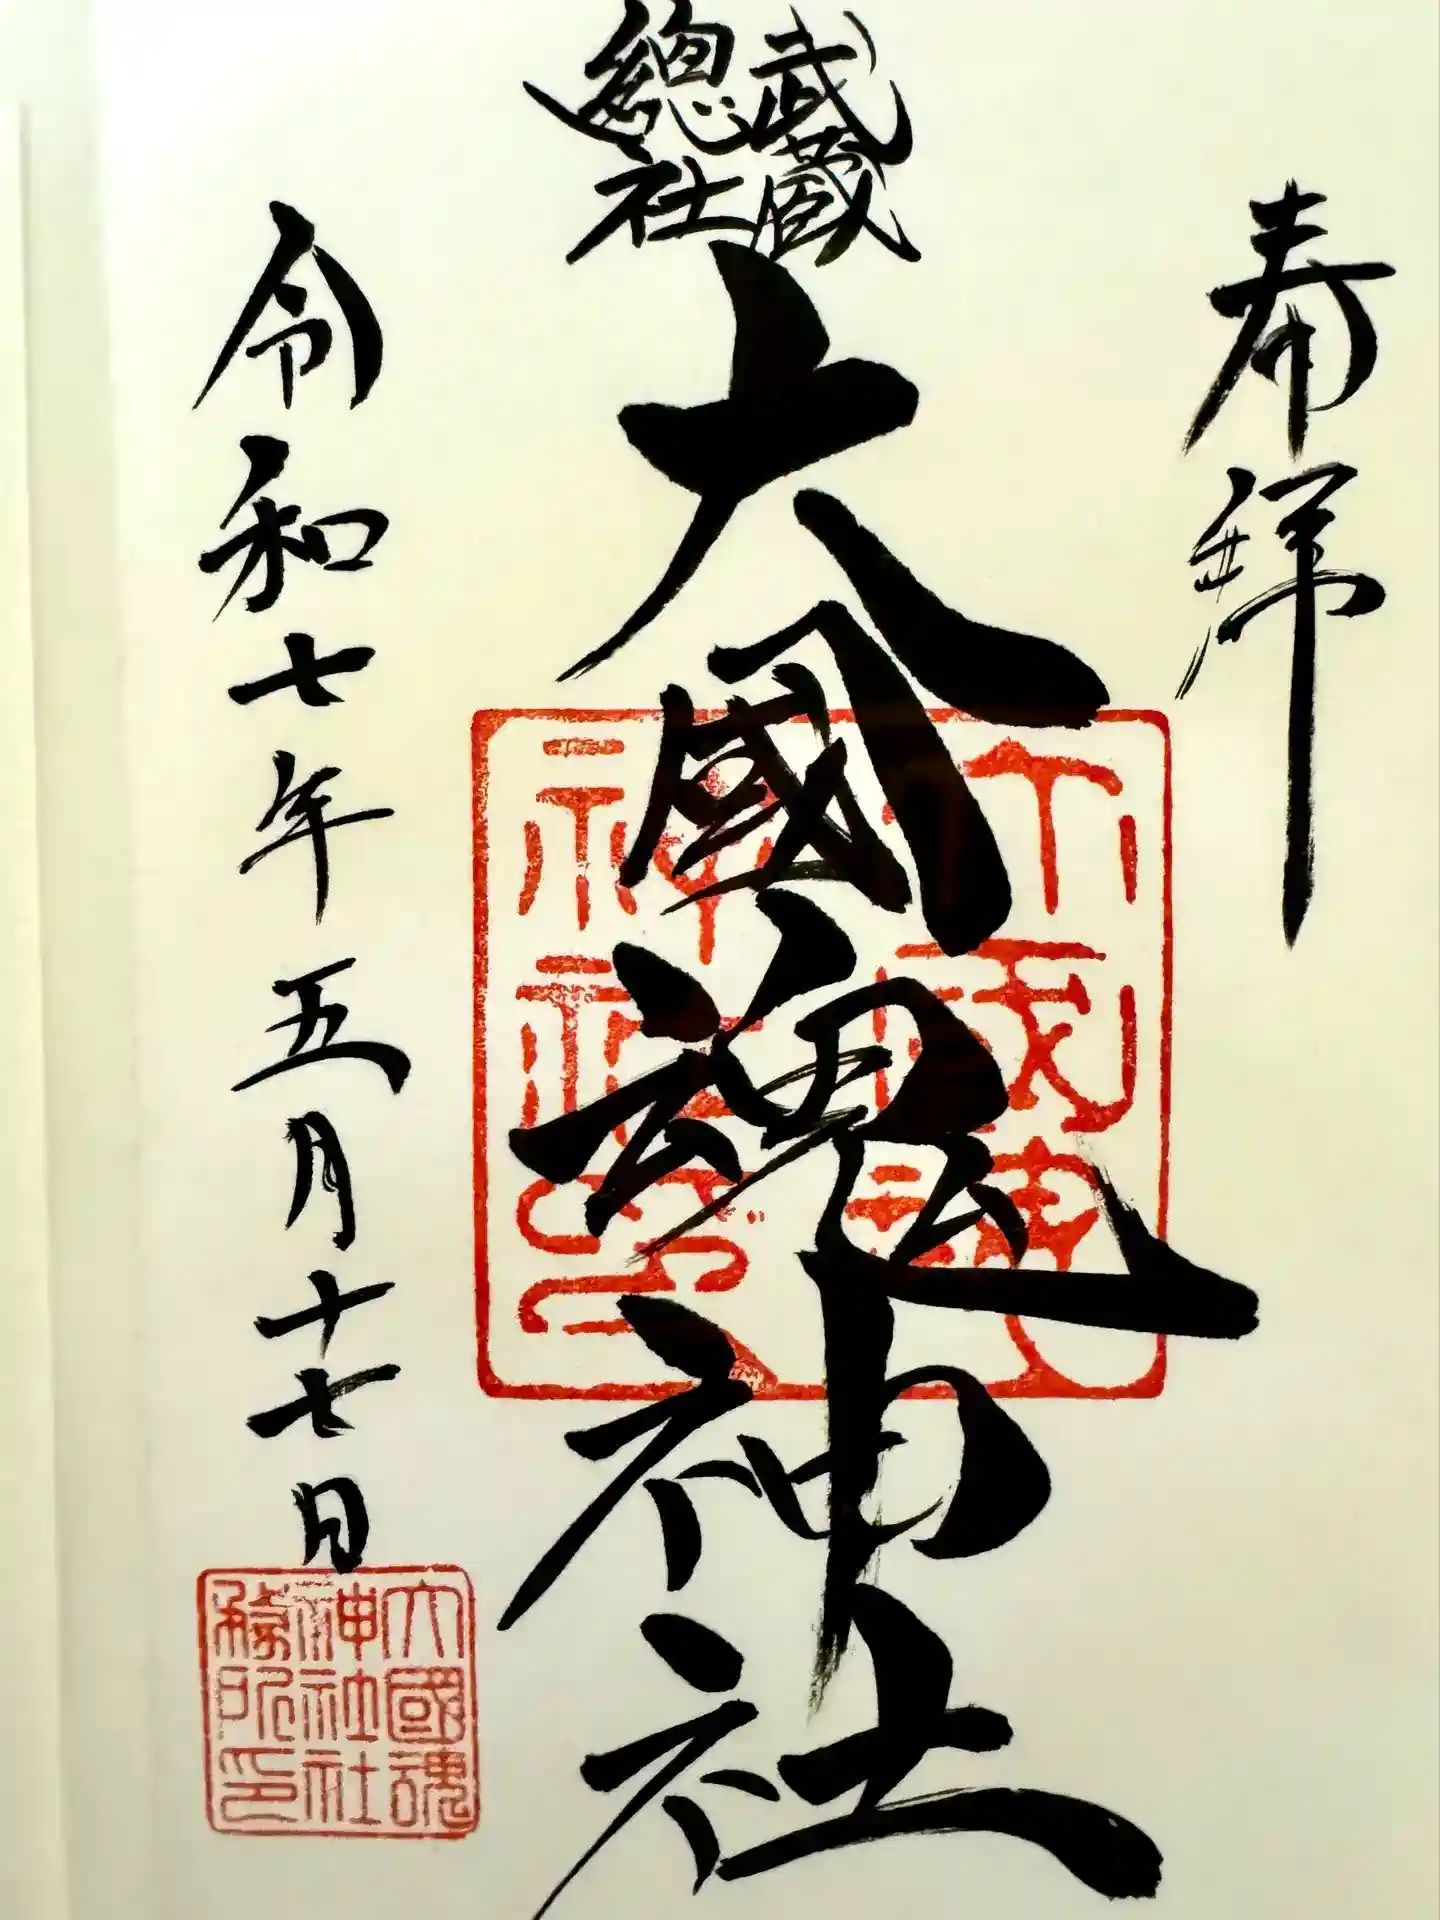 奉拝
武蔵
總社
大國魂神社
令和七年五月十七日
大國魂
神社社
務所印